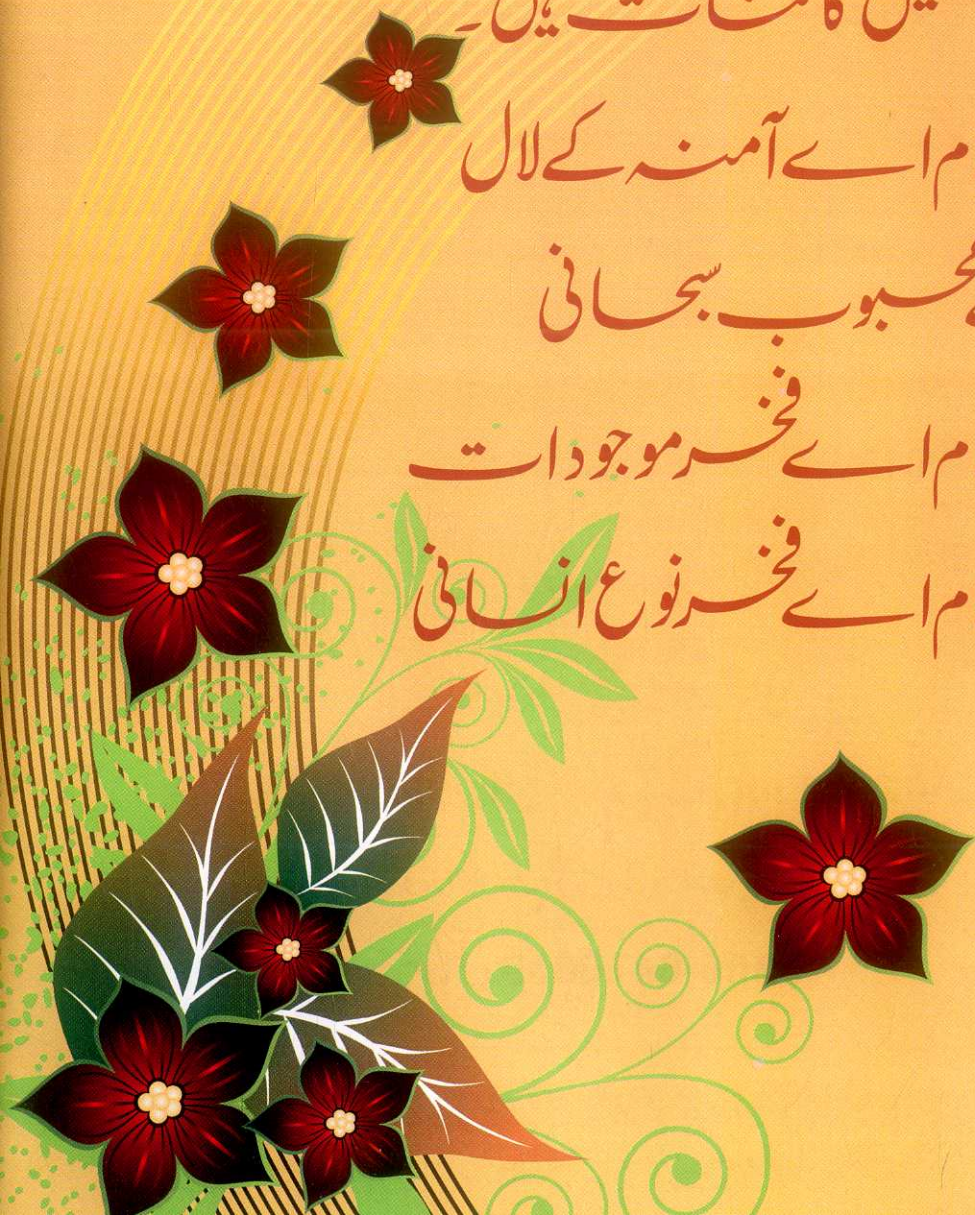 کائنات ہیں۔
م اے آمنہ کے لال
محبوب سبحانی
م اے فخر موجودات
م اے فخر نوع انسانی